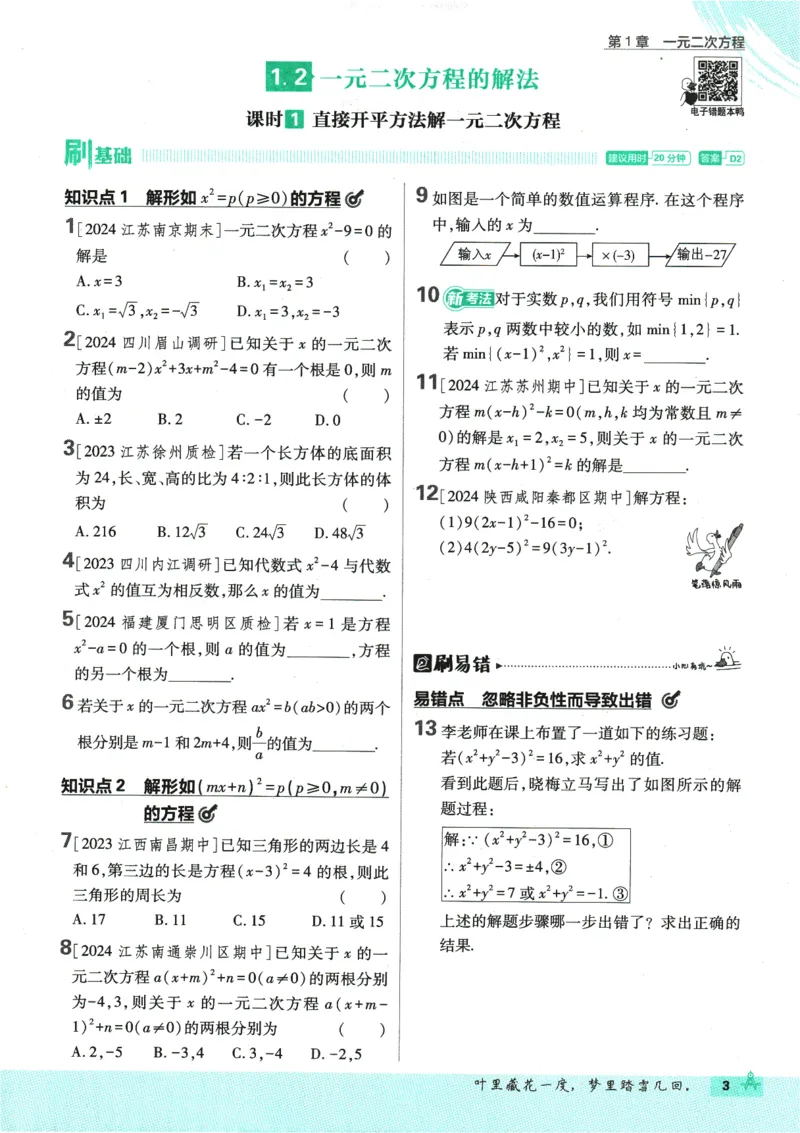 第1章 一元二次方程
电子错题本鸭
1.2 一元二次方程的解法
课时1 直接开平方法解一元二次方程
刷基础
建议用时 20分钟 答案 D2
知识点1 解形如x²=p(p≥0)的方程
1[2024江苏南京期末]一元二次方程x²-9=0的
解是 ( )
A.x=3 B.x₁=x₂=3
C.x₁=√3,x₂=-√3 D.x₁=3,x₂=-3
2[2024四川眉山调研]已知关于x的一元二次
方程(m-2)x²+3x+m²-4=0有一个根是0,则m
的值为 ( )
A.±2 B.2 C.-2 D.0
3[2023江苏徐州质检]若一个长方体的底面积
为24,长、宽、高的比为4∶2∶1,则此长方体的体
积为 ( )
A.216 B.12√3 C.24√3 D.48√3
4[2023四川内江调研]已知代数式x²-4与代数
式x²的值互为相反数,那么x的值为______.
5[2024福建厦门思明区质检]若x=1是方程
x²-a=0的一个根,则a的值为______,方程
的另一个根为______.
6若关于x的一元二次方程ax²=b(ab>0)的两个
根分别是m-1和2m+4,则b/a的值为______.
知识点2 解形如(mx+n)²=p(p≥0,m≠0)
的方程
7[2023江西南昌期中]已知三角形的两边长是4
和6,第三边的长是方程(x-3)²=4的根,则此
三角形的周长为 ( )
A.17 B.11 C.15 D.11或15
8[2024江苏南通崇川区期中]已知关于x的一
元二次方程a(x+m)²+n=0(a≠0)的两根分别
为-4,3,则关于x的一元二次方程a(x+m-
1)²+n=0(a≠0)的两根分别为 ( )
A.2,-5 B.-3,4 C.3,-4 D.-2,5
9如图是一个简单的数值运算程序.在这个程序
中,输入的x为______.
输入x (x-1)² ×(-3) 输出-27
10 新考法 对于实数p,q,我们用符号min{p,q}
表示p,q两数中较小的数,如min{1,2}=1.
若min{(x-1)²,x²}=1,则x=______.
11[2024江苏苏州期中]已知关于x的一元二次
方程m(x-h)²-k=0(m,h,k均为常数且m≠
0)的解是x₁=2,x₂=5,则关于x的一元二次
方程m(x-h+1)²=k的解是______.
12[2024陕西咸阳秦都区期中]解方程:
(1)9(2x-1)²-16=0;
(2)4(2y-5)²=9(3y-1)².
笔落惊风雨
刷易错
小心有坑~
易错点 忽略非负性而导致出错
13李老师在课上布置了一道如下的练习题:
若(x²+y²-3)²=16,求x²+y²的值.
看到此题后,晓梅立马写出了如图所示的解
题过程:
解:∵(x²+y²-3)²=16,①
∴x²+y²-3=±4,②
∴x²+y²=7或x²+y²=-1.③
上述的解题步骤哪一步出错了?求出正确的
结果.
叶里藏花一度,梦里踏雪几回. 3